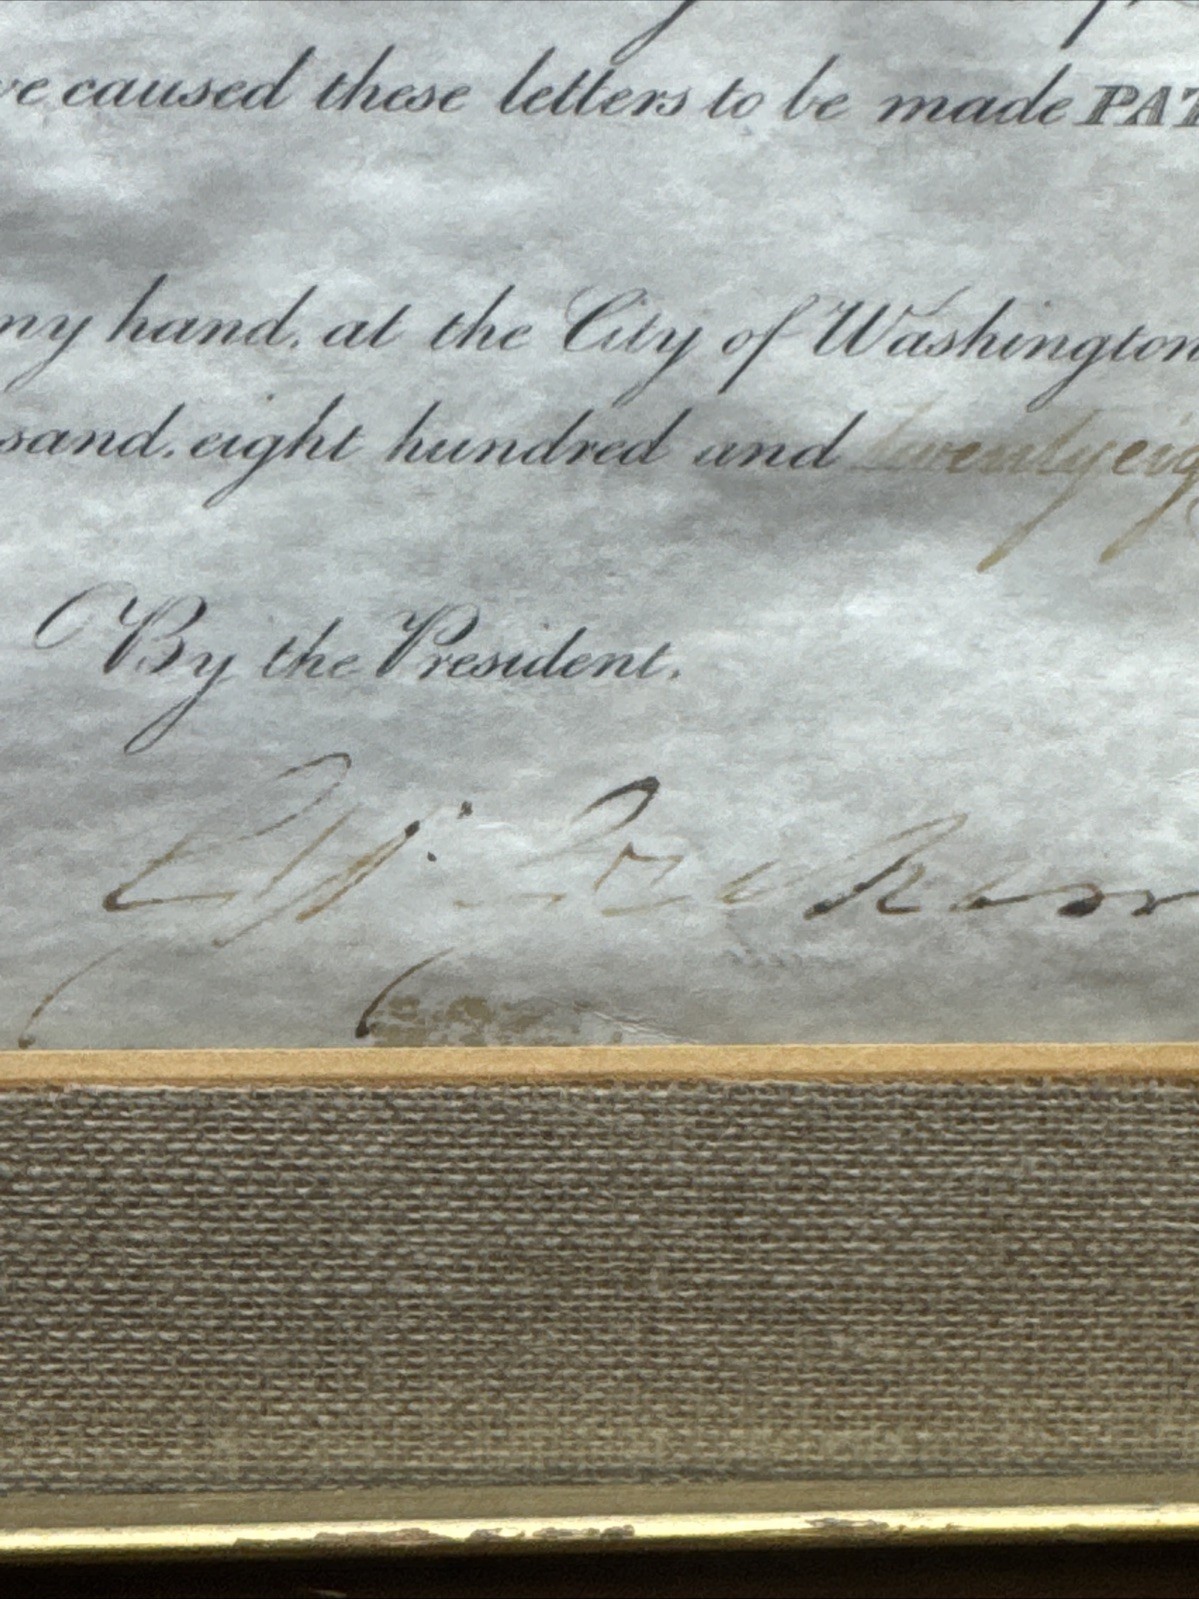 ve caused these letters to be made PAT
my hand, at the City of Washington
sand, eight hundred and twenty eig
By the President.